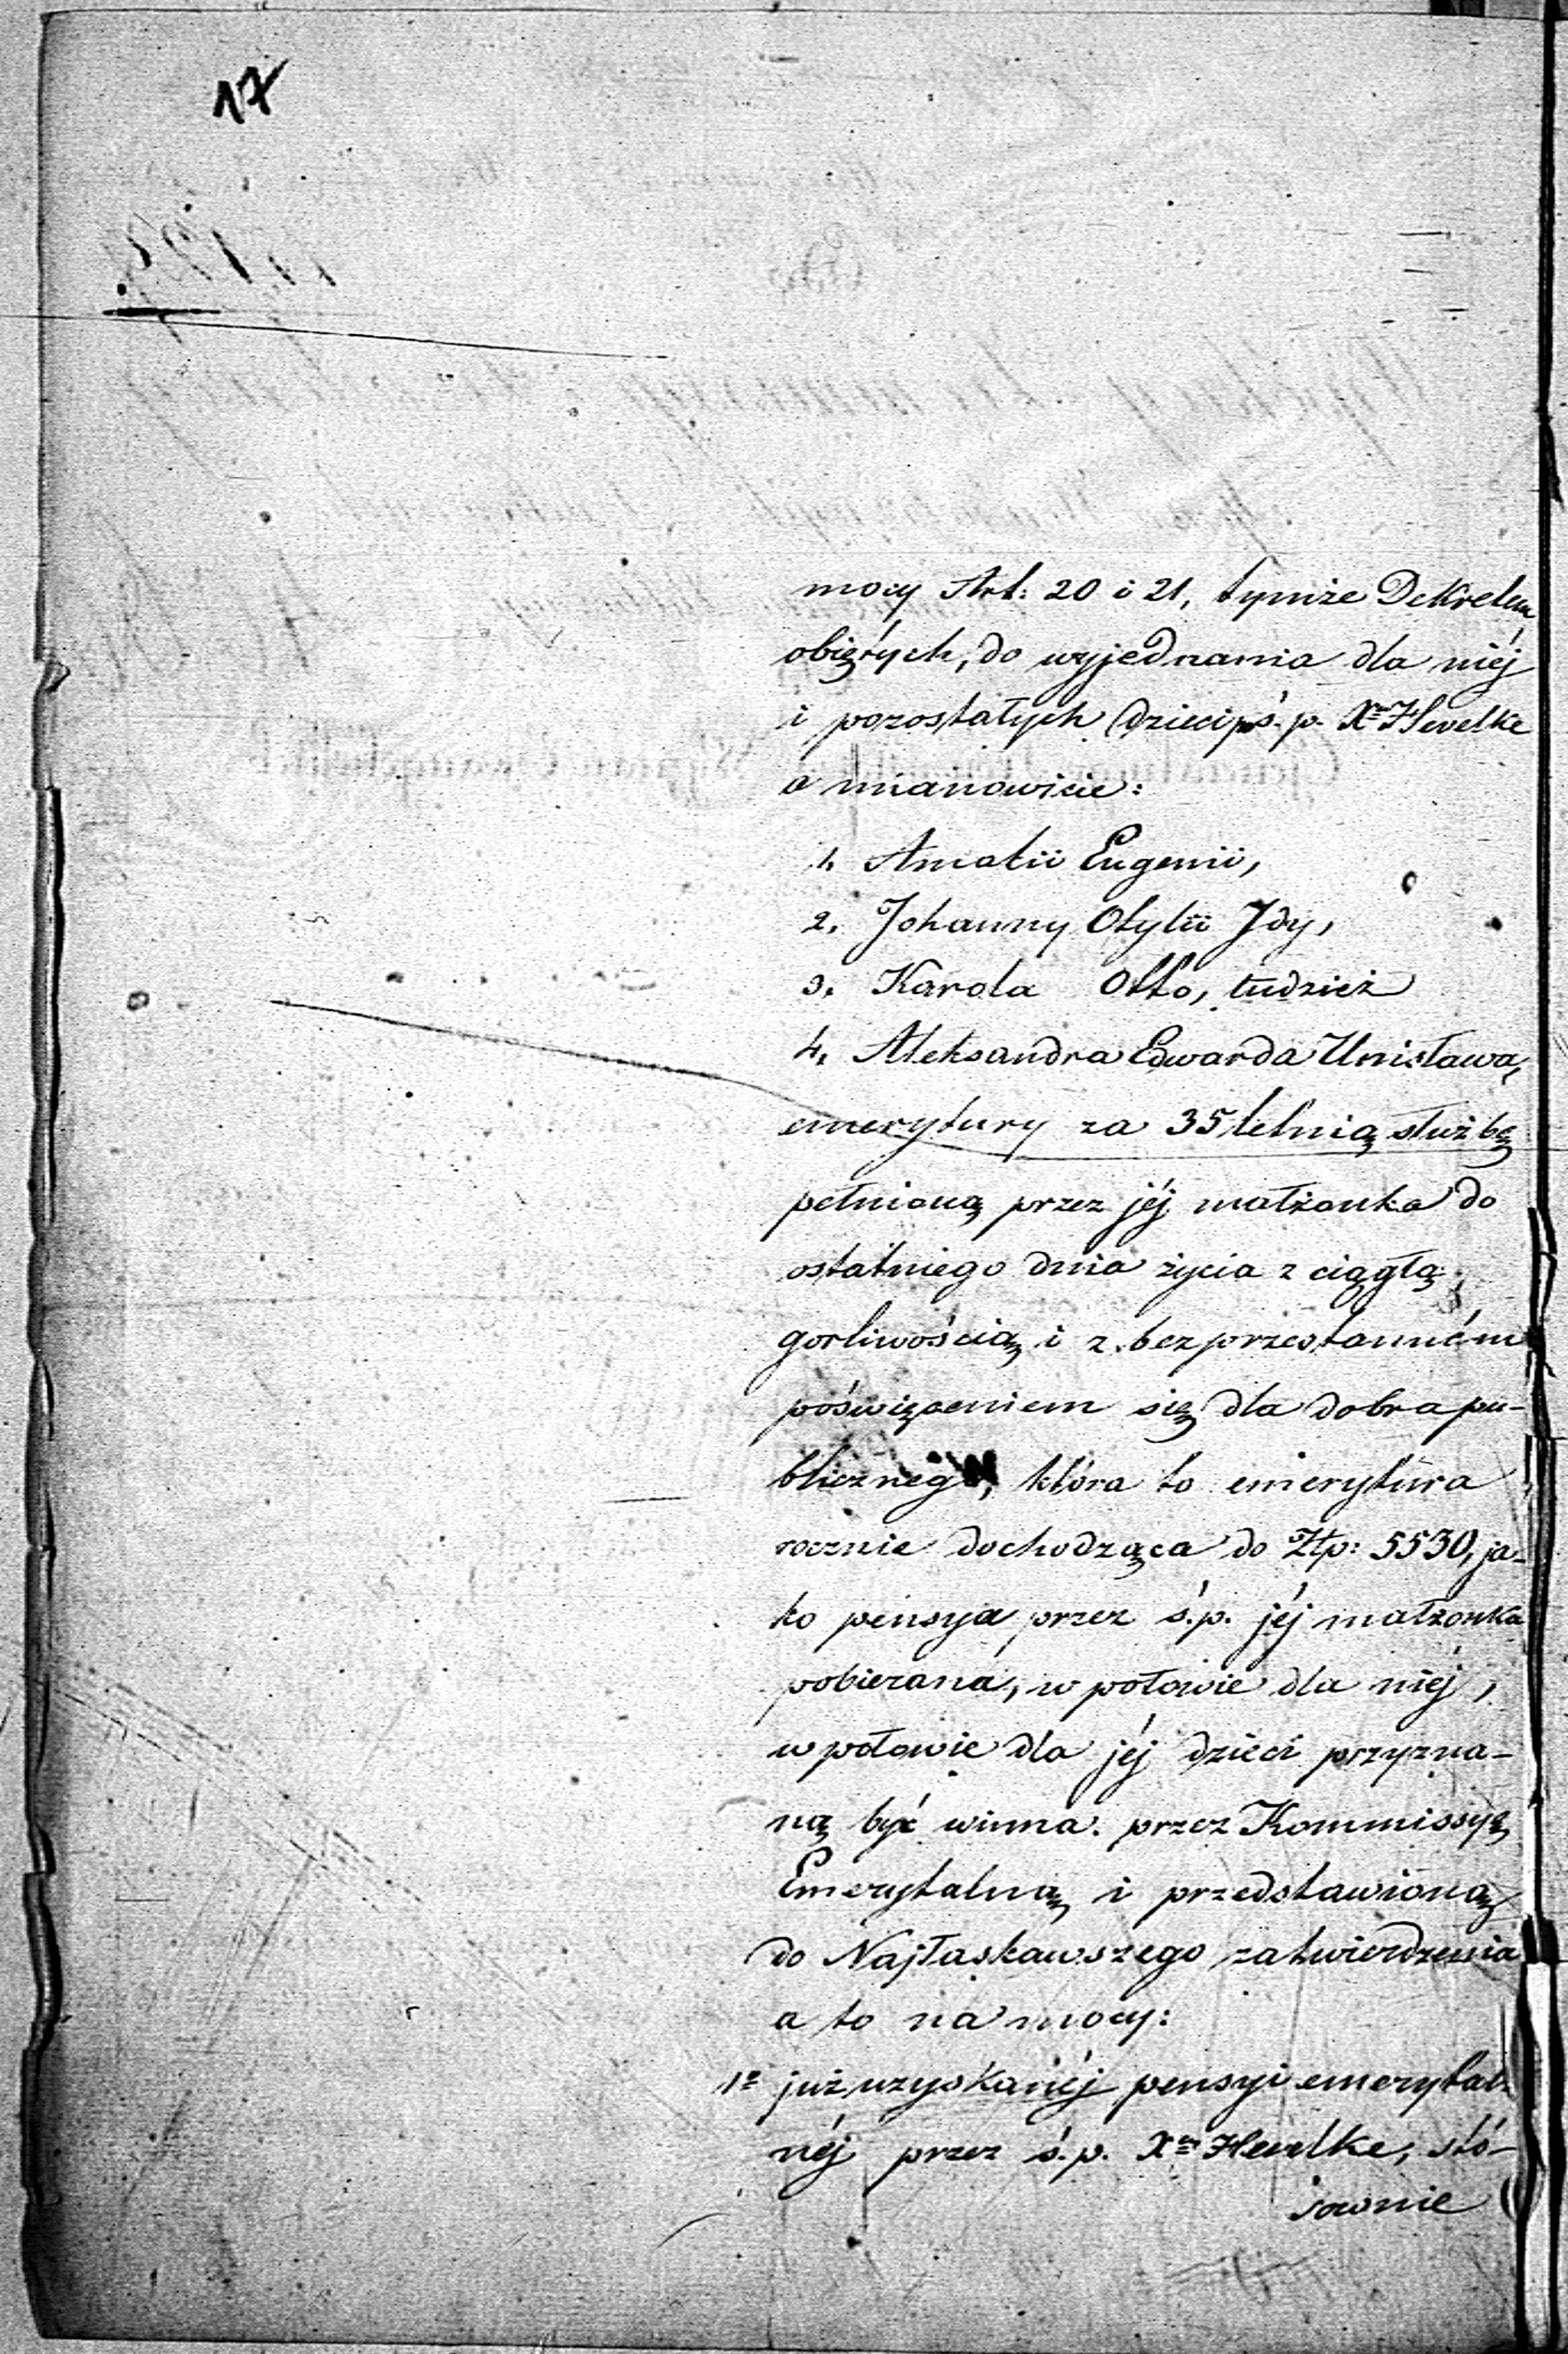 17
mocy Art: 20 i 21, tymże Dekretem
objętych, do wyjednania dla niéj
i pozostałych dzieci ś. p. Xa Hevelke
a mianowicie:
1. Amalii Eugenii,
2. Johanny Otylii Jdy,
3. Karola Otto, tudzież
4. Aleksandra Edwarda Unisława,
emerytury za 35 letnią służbę
pełnioną przez jéj małżonka do
ostatniego dnia życia z ciągłą
gorliwością i z bezprzestanném
poświęceniem się dla dobra pu-
blicznego, która to emerytura
rocznie dochodząca do Złp: 5530, ja-
ko pensya przez ś. p. jéj małżonka
pobierana, w połowie dla niéj,
w połowie dla jéj dzieci przyzna-
ną być winna przez Kommissyę
Emerytalną i przedstawioną
do Najłaskawszego zatwierdzenia
a to na mocy:
1º już uzyskanéj pensyi emerytal-
néj przez ś. p. Xa Hevelke, stó-
sownie